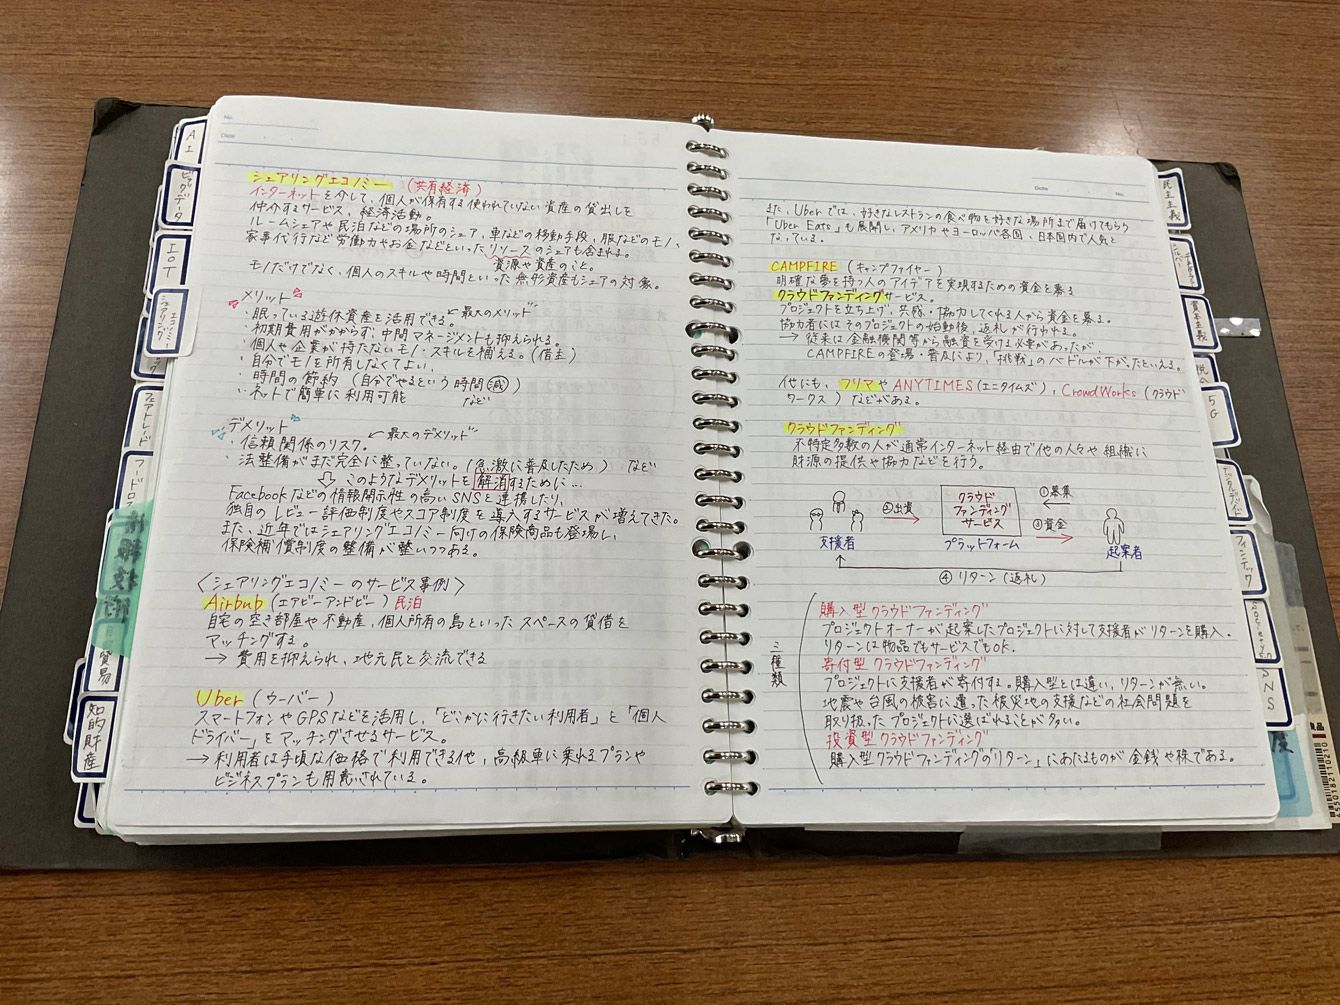 AI
ビッグデータ
IOT
シェアリングエコノミー
フェアトレード
フードロス
情報技術
貿易
知的財産
No.
Date
シェアリングエコノミー (共有経済)
インターネットを介して、個人が保有する使われていない資産の貸出しを
仲介するサービス、経済活動。
ルームシェアや民泊などの場所のシェア、車などの移動手段、服などのモノ、
家事代行など労働力やお金などといったリソースのシェアも含まれる。
資源や資産のこと。
モノだけでなく、個人のスキルや時間といった無形資産もシェアの対象。
メリット
・眠っている遊休資産を活用できる。←最大のメリット
・初期費用がかからず、中間マネージメントも抑えられる。
・個人や企業が持たないモノ・スキルを補える。(借主)
・自分でモノを所有しなくてよい。
・時間の節約 (自分でやるという時間減)
・ネットで簡単に利用可能 など
デメリット
・信頼関係のリスク。←最大のデメリット
・法整備がまだ完全に整っていない。(急激に普及したため) など
⇩ このようなデメリットを解消するために…
Facebookなどの情報開示性の高いSNSと連携したり、
独自のレビュー評価制度やスコア制度を導入するサービスが増えてきた。
また、近年ではシェアリングエコノミー向けの保険商品も登場し、
保険補償制度の整備が整いつつある。
〈シェアリングエコノミーのサービス事例〉
Airbnb (エアビーアンドビー) 民泊
自宅の空き部屋や不動産、個人所有の島といったスペースの貸借を
マッチングする。
→ 費用を抑えられ、地元民と交流できる
Uber (ウーバー)
スマートフォンやGPSなどを活用し、「どこかに行きたい利用者」と「個人
ドライバー」をマッチングさせるサービス。
→利用者は手頃な価格で利用できる他、高級車に乗れるプランや
ビジネスプランも用意されている。
Date
No.
また、Uberでは、好きなレストランの食べ物を好きな場所まで届けてもらう
「Uber Eats」も展開し、アメリカやヨーロッパ各国、日本国内で人気と
なっている。
CAMPFIRE (キャンプファイヤー)
明確な夢を持つ人のアイデアを実現するための資金を募る
クラウドファンディングサービス。
プロジェクトを立ち上げ、共感・協力してくれる人から資金を募る。
協力者にはそのプロジェクトの始動後、返礼が行われる。
→ 従来は金融機関等から融資を受ける必要があったが
CAMPFIREの登場・普及により、「挑戦」のハードルが下がったといえる。
他にも、フリマやANYTIMES (エニタイムズ)、CrowdWorks (クラウド
ワークス) などがある。
クラウドファンディング
不特定多数の人が通常インターネット経由で他の人々や組織に
財源の提供や協力などを行う。
支援者
②出資
クラウド
ファンディング
サービス
プラットフォーム
①募集
③資金
起案者
④リターン(返礼)
三種類
購入型クラウドファンディング
プロジェクトオーナーが起案したプロジェクトに対して支援者がリターンを購入。
リターンは物品でもサービスでもOK.
寄付型クラウドファンディング
プロジェクトに支援者が寄付する。購入型とは違い、リターンが無い。
地震や台風の被害に遭った被災地の支援などの社会問題を
取り扱ったプロジェクトに選ばれることが多い。
投資型クラウドファンディング
購入型クラウドファンディングの「リターン」にあたるものが金銭や株である。
民主主義
資本主義
5G
フィンテック
Society5.0
SNS